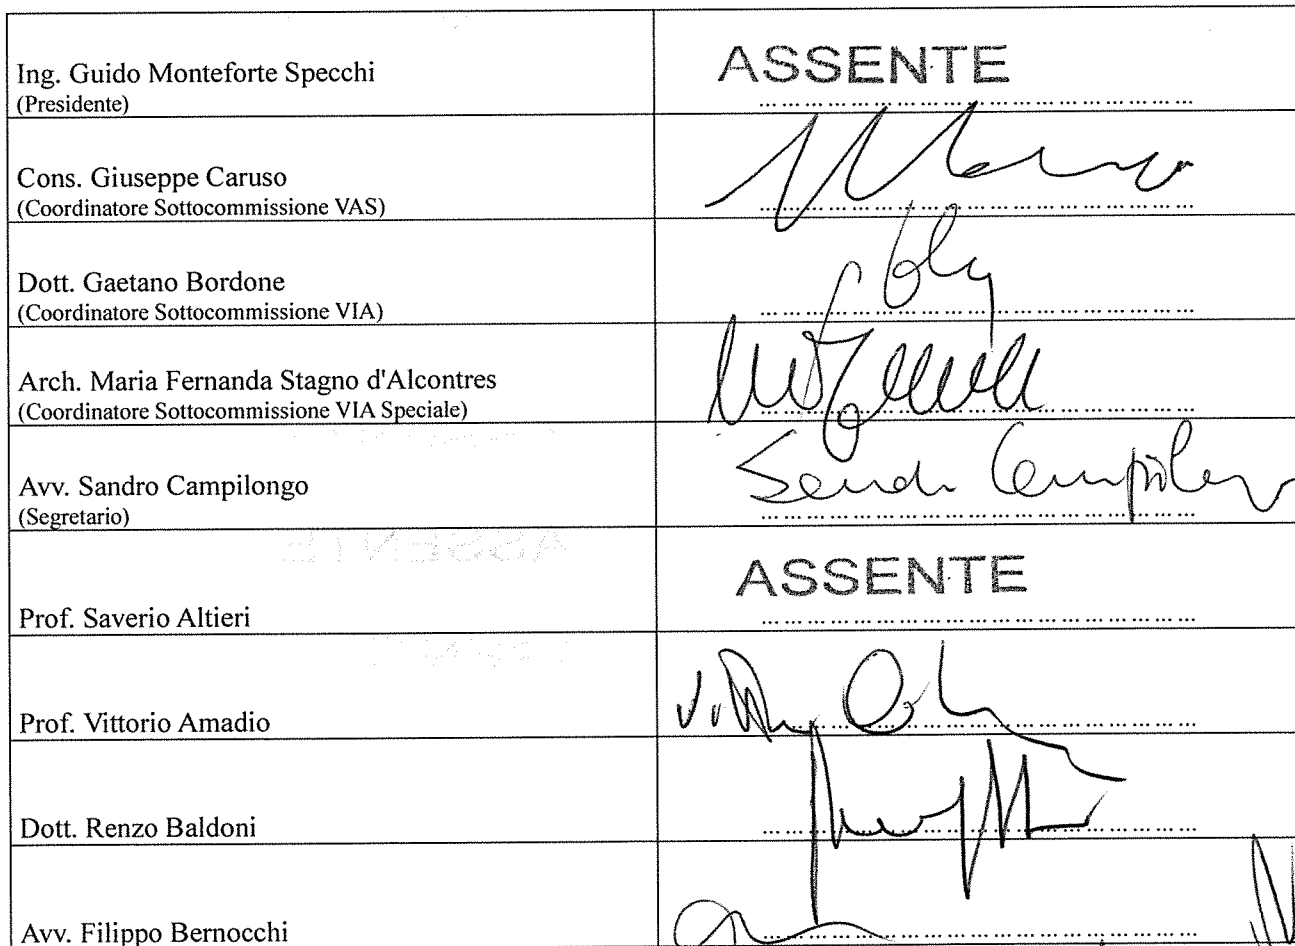 Ing. Guido Monteforte Specchi
(Presidente)
ASSENTE
Cons. Giuseppe Caruso
(Coordinatore Sottocommissione VAS)
Dott. Gaetano Bordone
(Coordinatore Sottocommissione VIA)
Arch. Maria Fernanda Stagno d'Alcontres
(Coordinatore Sottocommissione VIA Speciale)
Avv. Sandro Campilongo
(Segretario)
Prof. Saverio Altieri
ASSENTE
Prof. Vittorio Amadio
Dott. Renzo Baldoni
Avv. Filippo Bernocchi